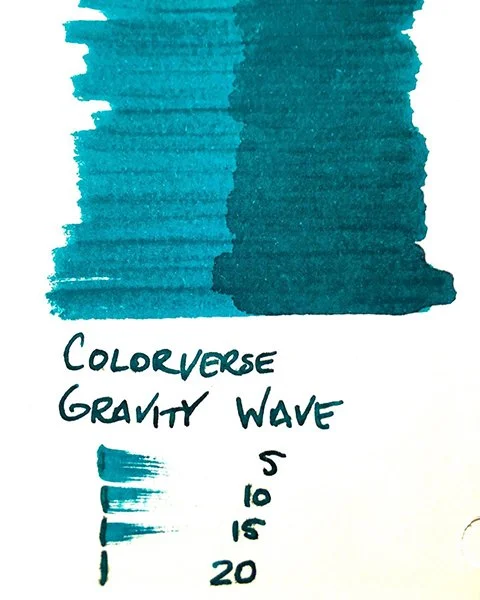 COLORVERSE
GRAVITY WAVE
5
10
15
20